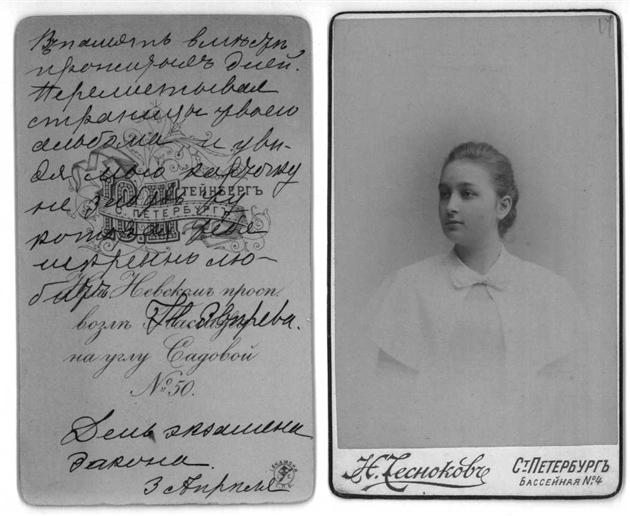 Въ память вмѣстѣ
прожитыхъ дней.
Перелистывая
страницы твоего
альбома и уви-
дя мою карточку
не забудь ту
которая тебя
искренно лю-
битъ
ТЕЙНБЕРГЪ
С. ПЕТЕРБУРГЪ
Невскомъ просп.
возлѣ
на углу Садовой
№ 50.
День экзамена
Закона.
3 Апрѣля
Н. Чесноковъ
СТ. ПЕТЕРБУРГЪ
БАССЕЙНАЯ №4